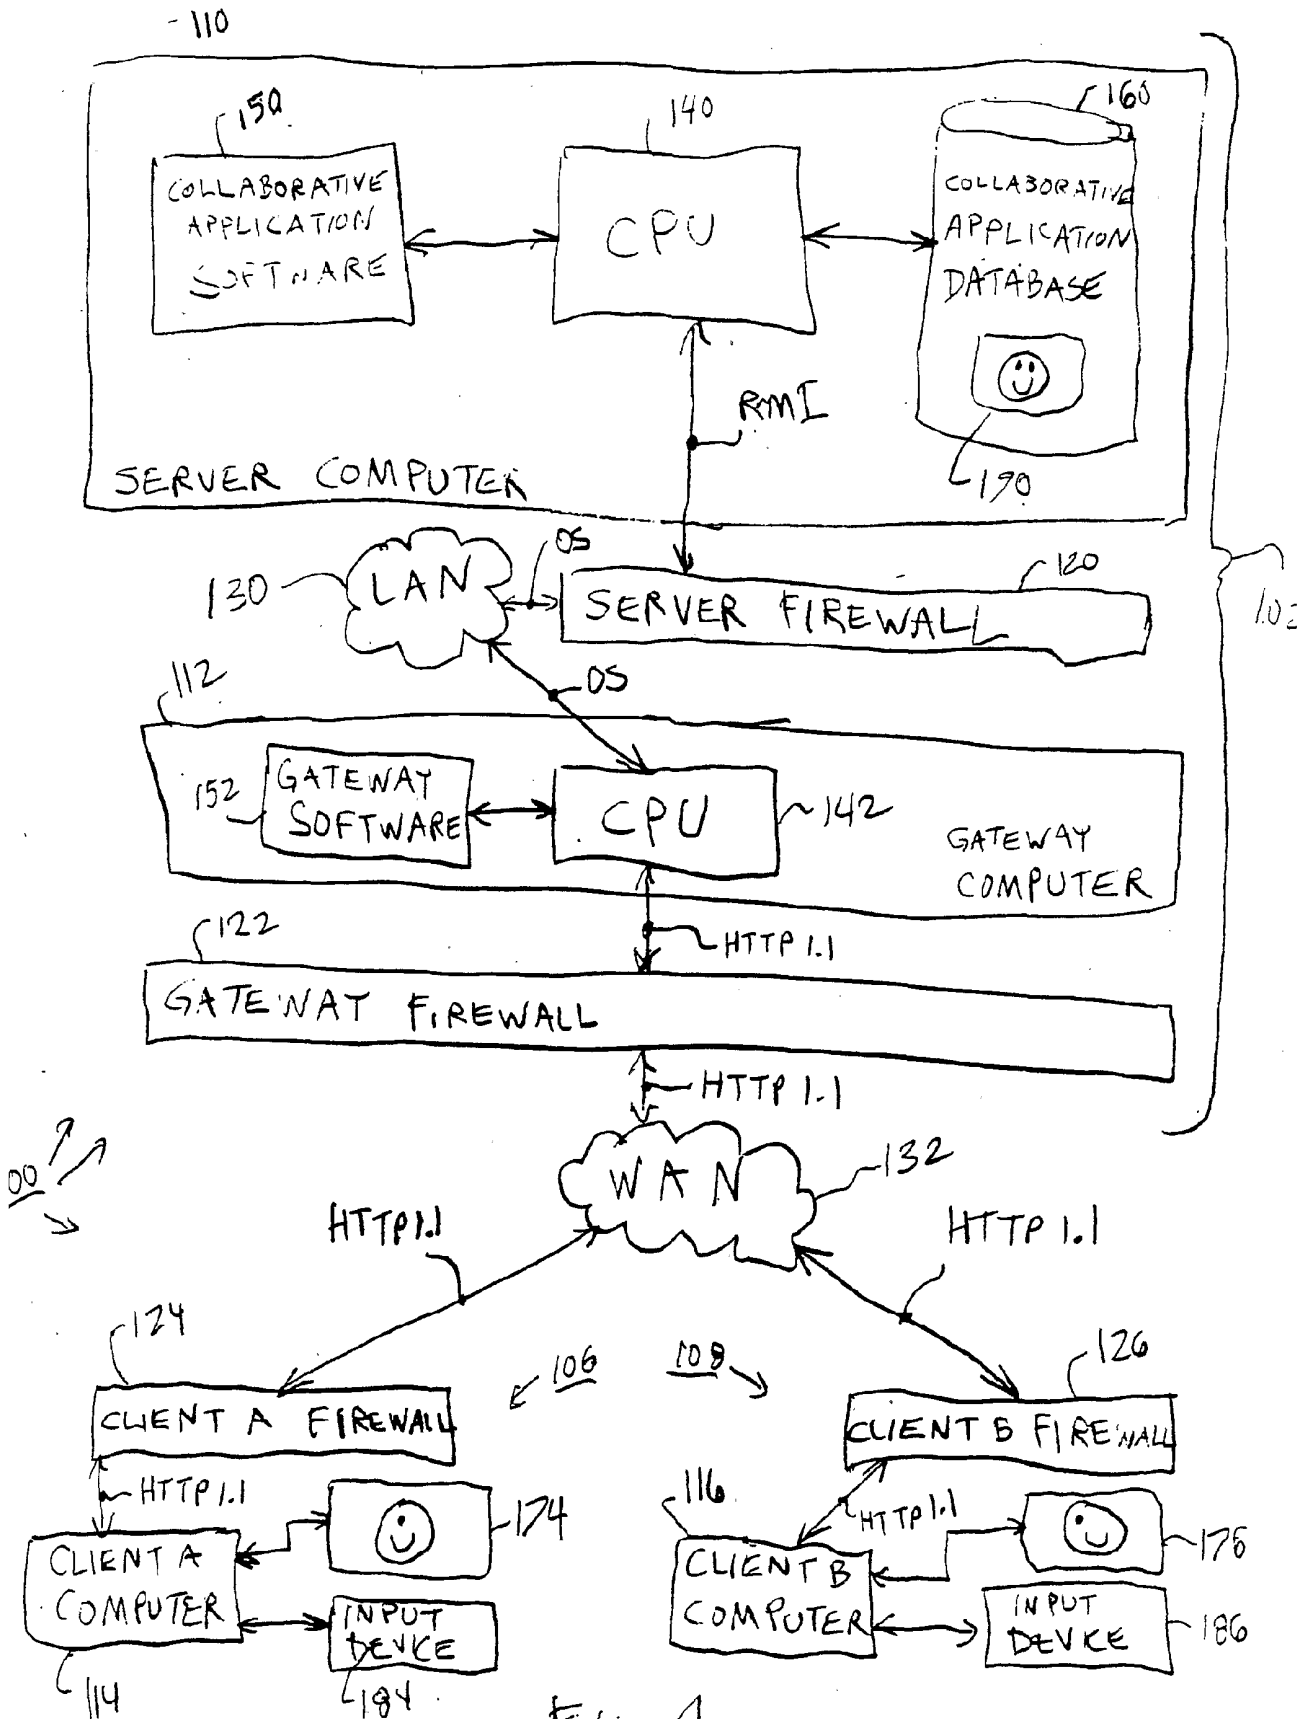 110
150
140
160
COLLABORATIVE
APPLICATION
SOFTWARE
CPU
COLLABORATIVE
APPLICATION
DATABASE
RMI
190
SERVER COMPUTER
OS
130
LAN
120
SERVER FIREWALL
112
OS
152
GATEWAY
SOFTWARE
CPU
142
GATEWAY
COMPUTER
122
HTTP 1.1
GATEWAY FIREWALL
HTTP 1.1
WAN
132
00
HTTP 1.1
HTTP 1.1
124
106
108
126
CLIENT A FIREWALL
CLIENT B FIREWALL
HTTP 1.1
174
116
HTTP 1.1
CLIENT A
COMPUTER
CLIENT B
COMPUTER
INPUT
DEVICE
INPUT
DEVICE
186
114
184